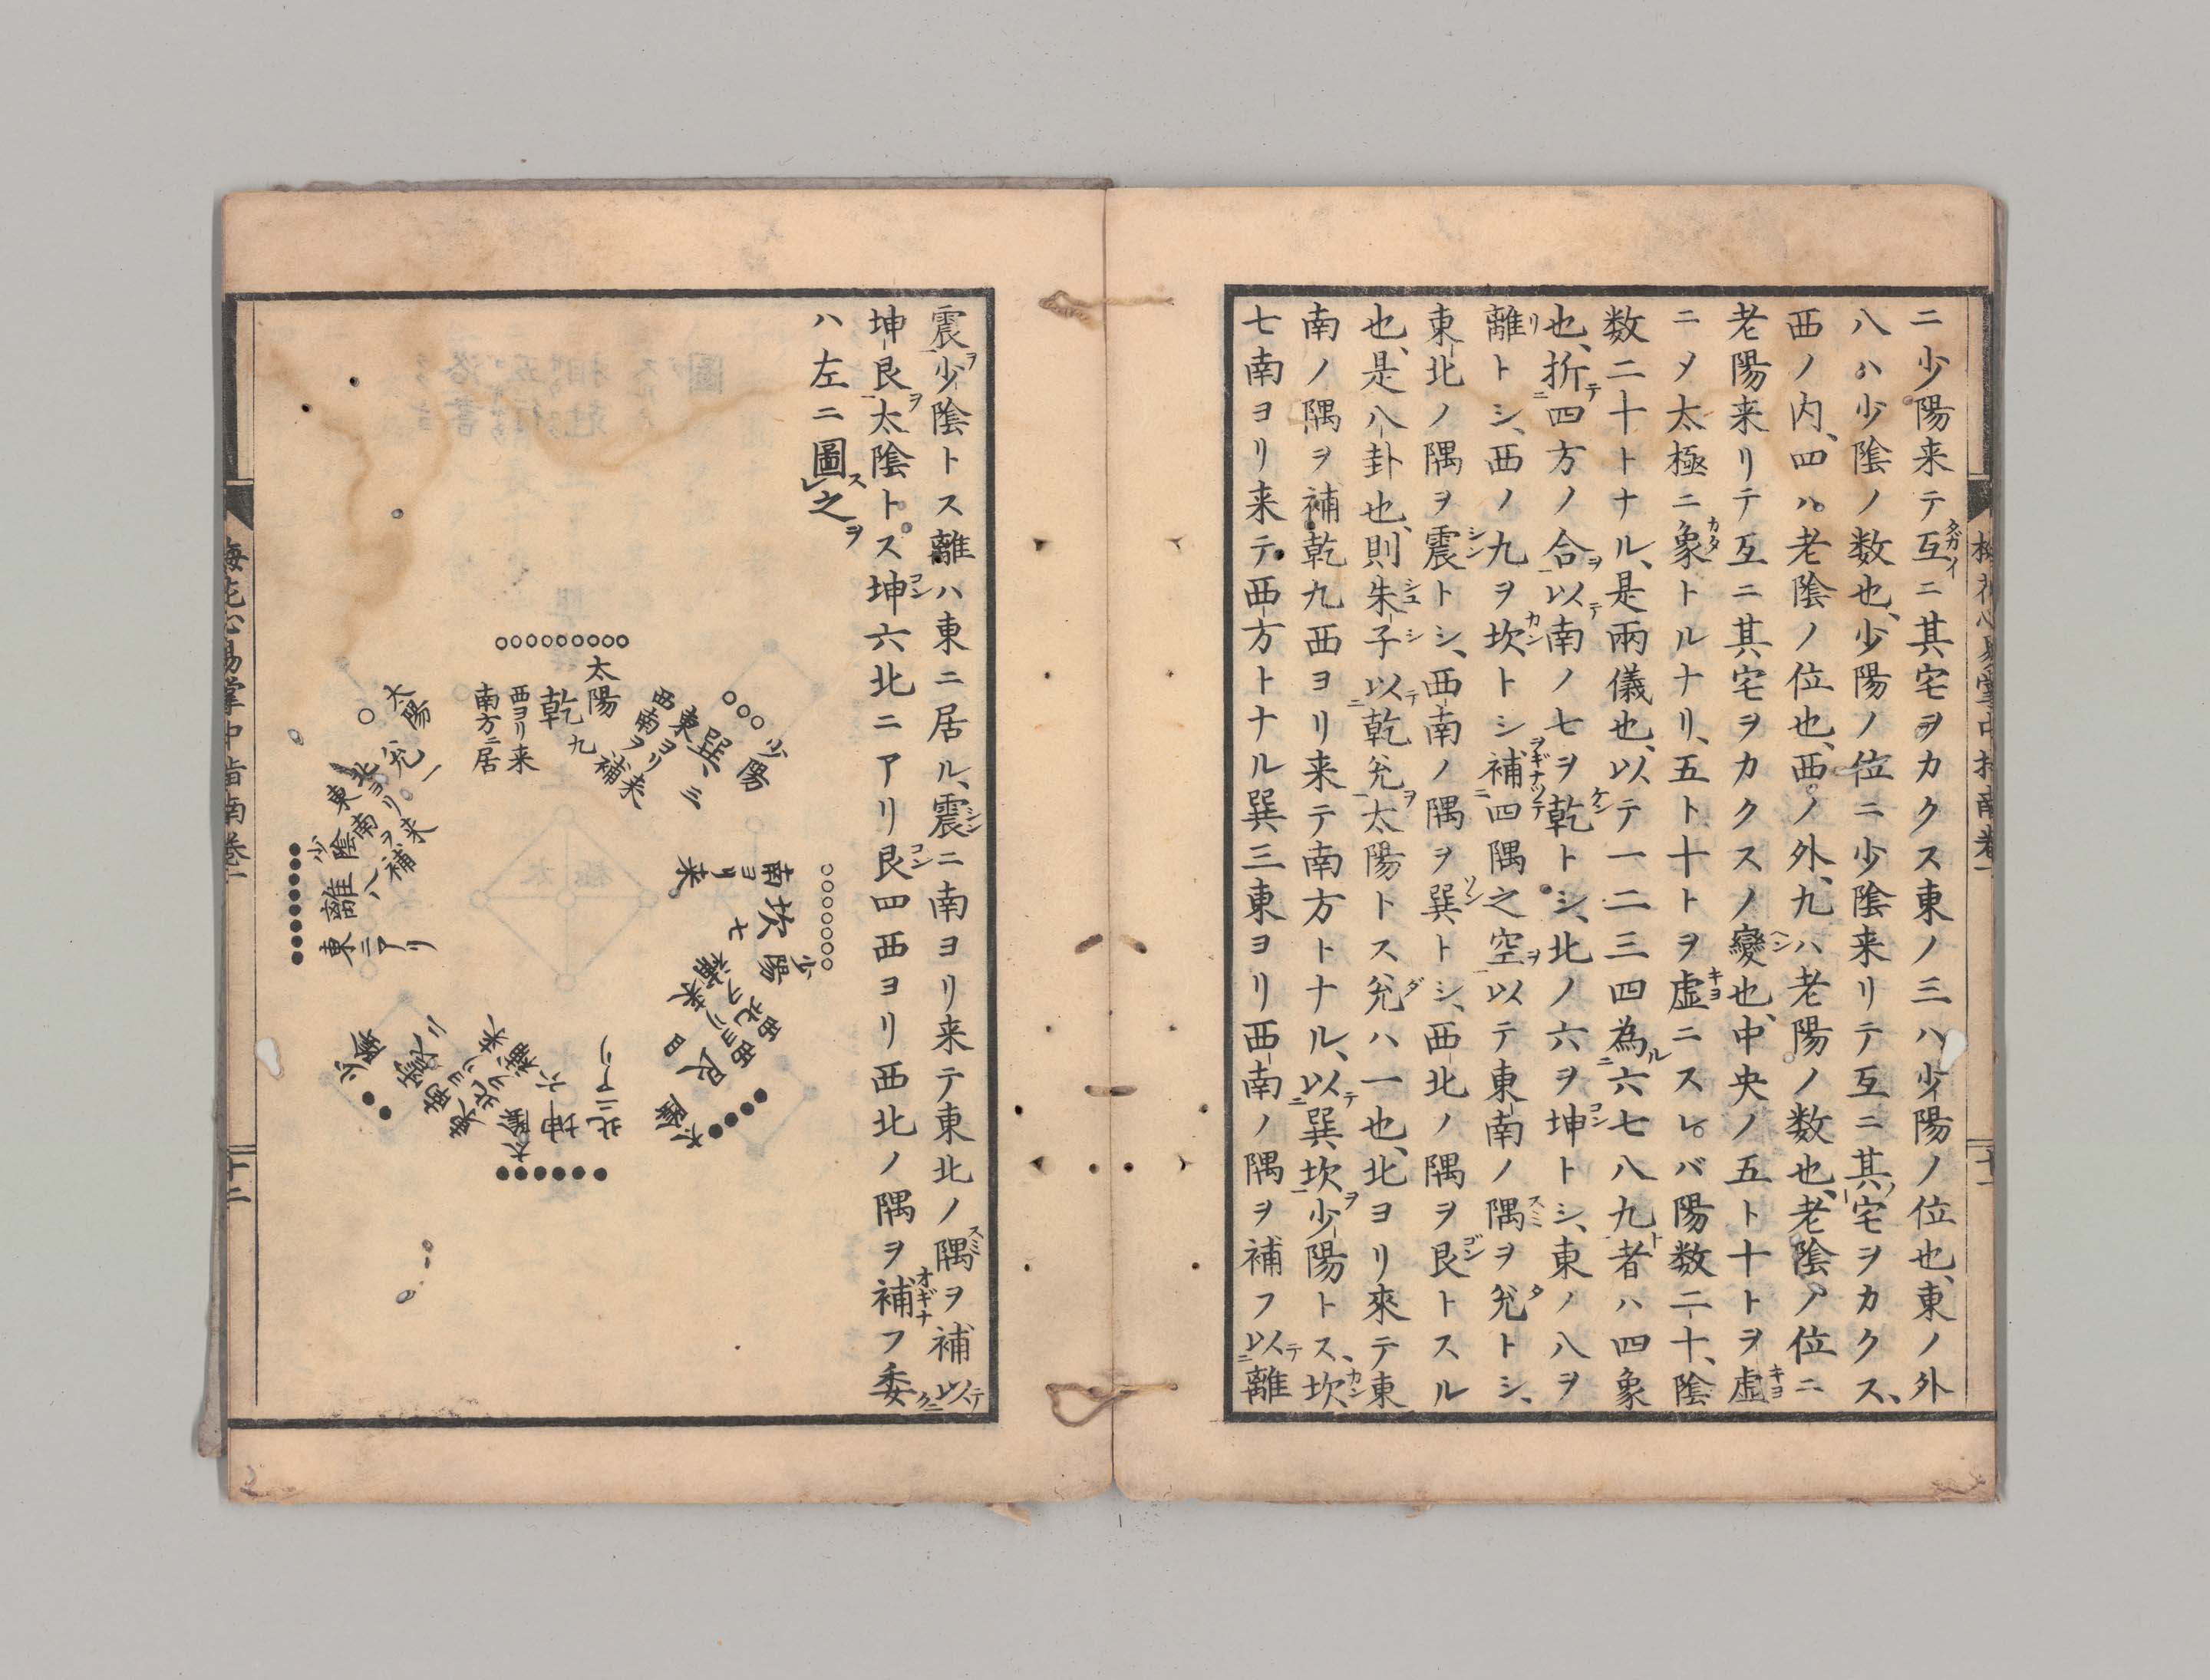 ニ少陽来テ互ニ其宅ヲカクス東ノ三ハ少陽ノ位也、東ノ外
八ハ少陰ノ数也、少陽ノ位ニ少陰来リテ互ニ其宅ヲカクス、
西ノ内、四ハ老陰ノ位也、西ノ外、九ハ老陽ノ数也、老陰ノ位ニ
老陽来リテ互ニ其宅ヲカクスノ變也、中央ノ五ト十トヲ虚
ニメ太極ニ象トルナリ、五ト十トヲ虚ニスレバ陽数二十、陰
数二十トナル、是兩儀也、以テ一二三四為ル六七八九者ハ四象
也、折テ四方ノ合ヲ以テ南ノ七ヲ乾トシ、北ノ六ヲ坤トシ、東ノ八ヲ
離トシ、西ノ九ヲ坎トシ補四隅之空ヲ以テ東南ノ隅ヲ兊トシ、
東北ノ隅ヲ震トシ、西南ノ隅ヲ巽トシ、西北ノ隅ヲ艮トスル
也、是八卦也、則朱子以テ乾兊ヲ太陽トス兊ハ一也、北ヨリ來テ東
南ノ隅ヲ補乾九西ヨリ来テ南方トナル、以テ巽坎ヲ少陽トス、坎
七南ヨリ来テ西方トナル巽三東ヨリ西南ノ隅ヲ補フ以テ離
震ヲ少陰トス離ハ東ニ居ル、震ニ南ヨリ来テ東北ノ隅ヲ補以テ
坤艮ヲ太陰トス坤六北ニアリ艮四西ヨリ西北ノ隅ヲ補フ委クハ
ハ左ニ圖ス之ヲ
少陽
巽三
東ヨリ来
西南ヲ補
太陽
乾九
西ヨリ来
南方ニ居
太陽
兊一
北ヨリ来
東南ヲ補
少陰
離八
東ニアリ
南ヨリ来
坎七
少陽
西ヨリ来
西北ヲ補
艮四
太陰
北ニアリ
坤六
太陰
南ヨリ来
東北ヲ補
震二
少陰
梅花心易掌中指南巻一
十二